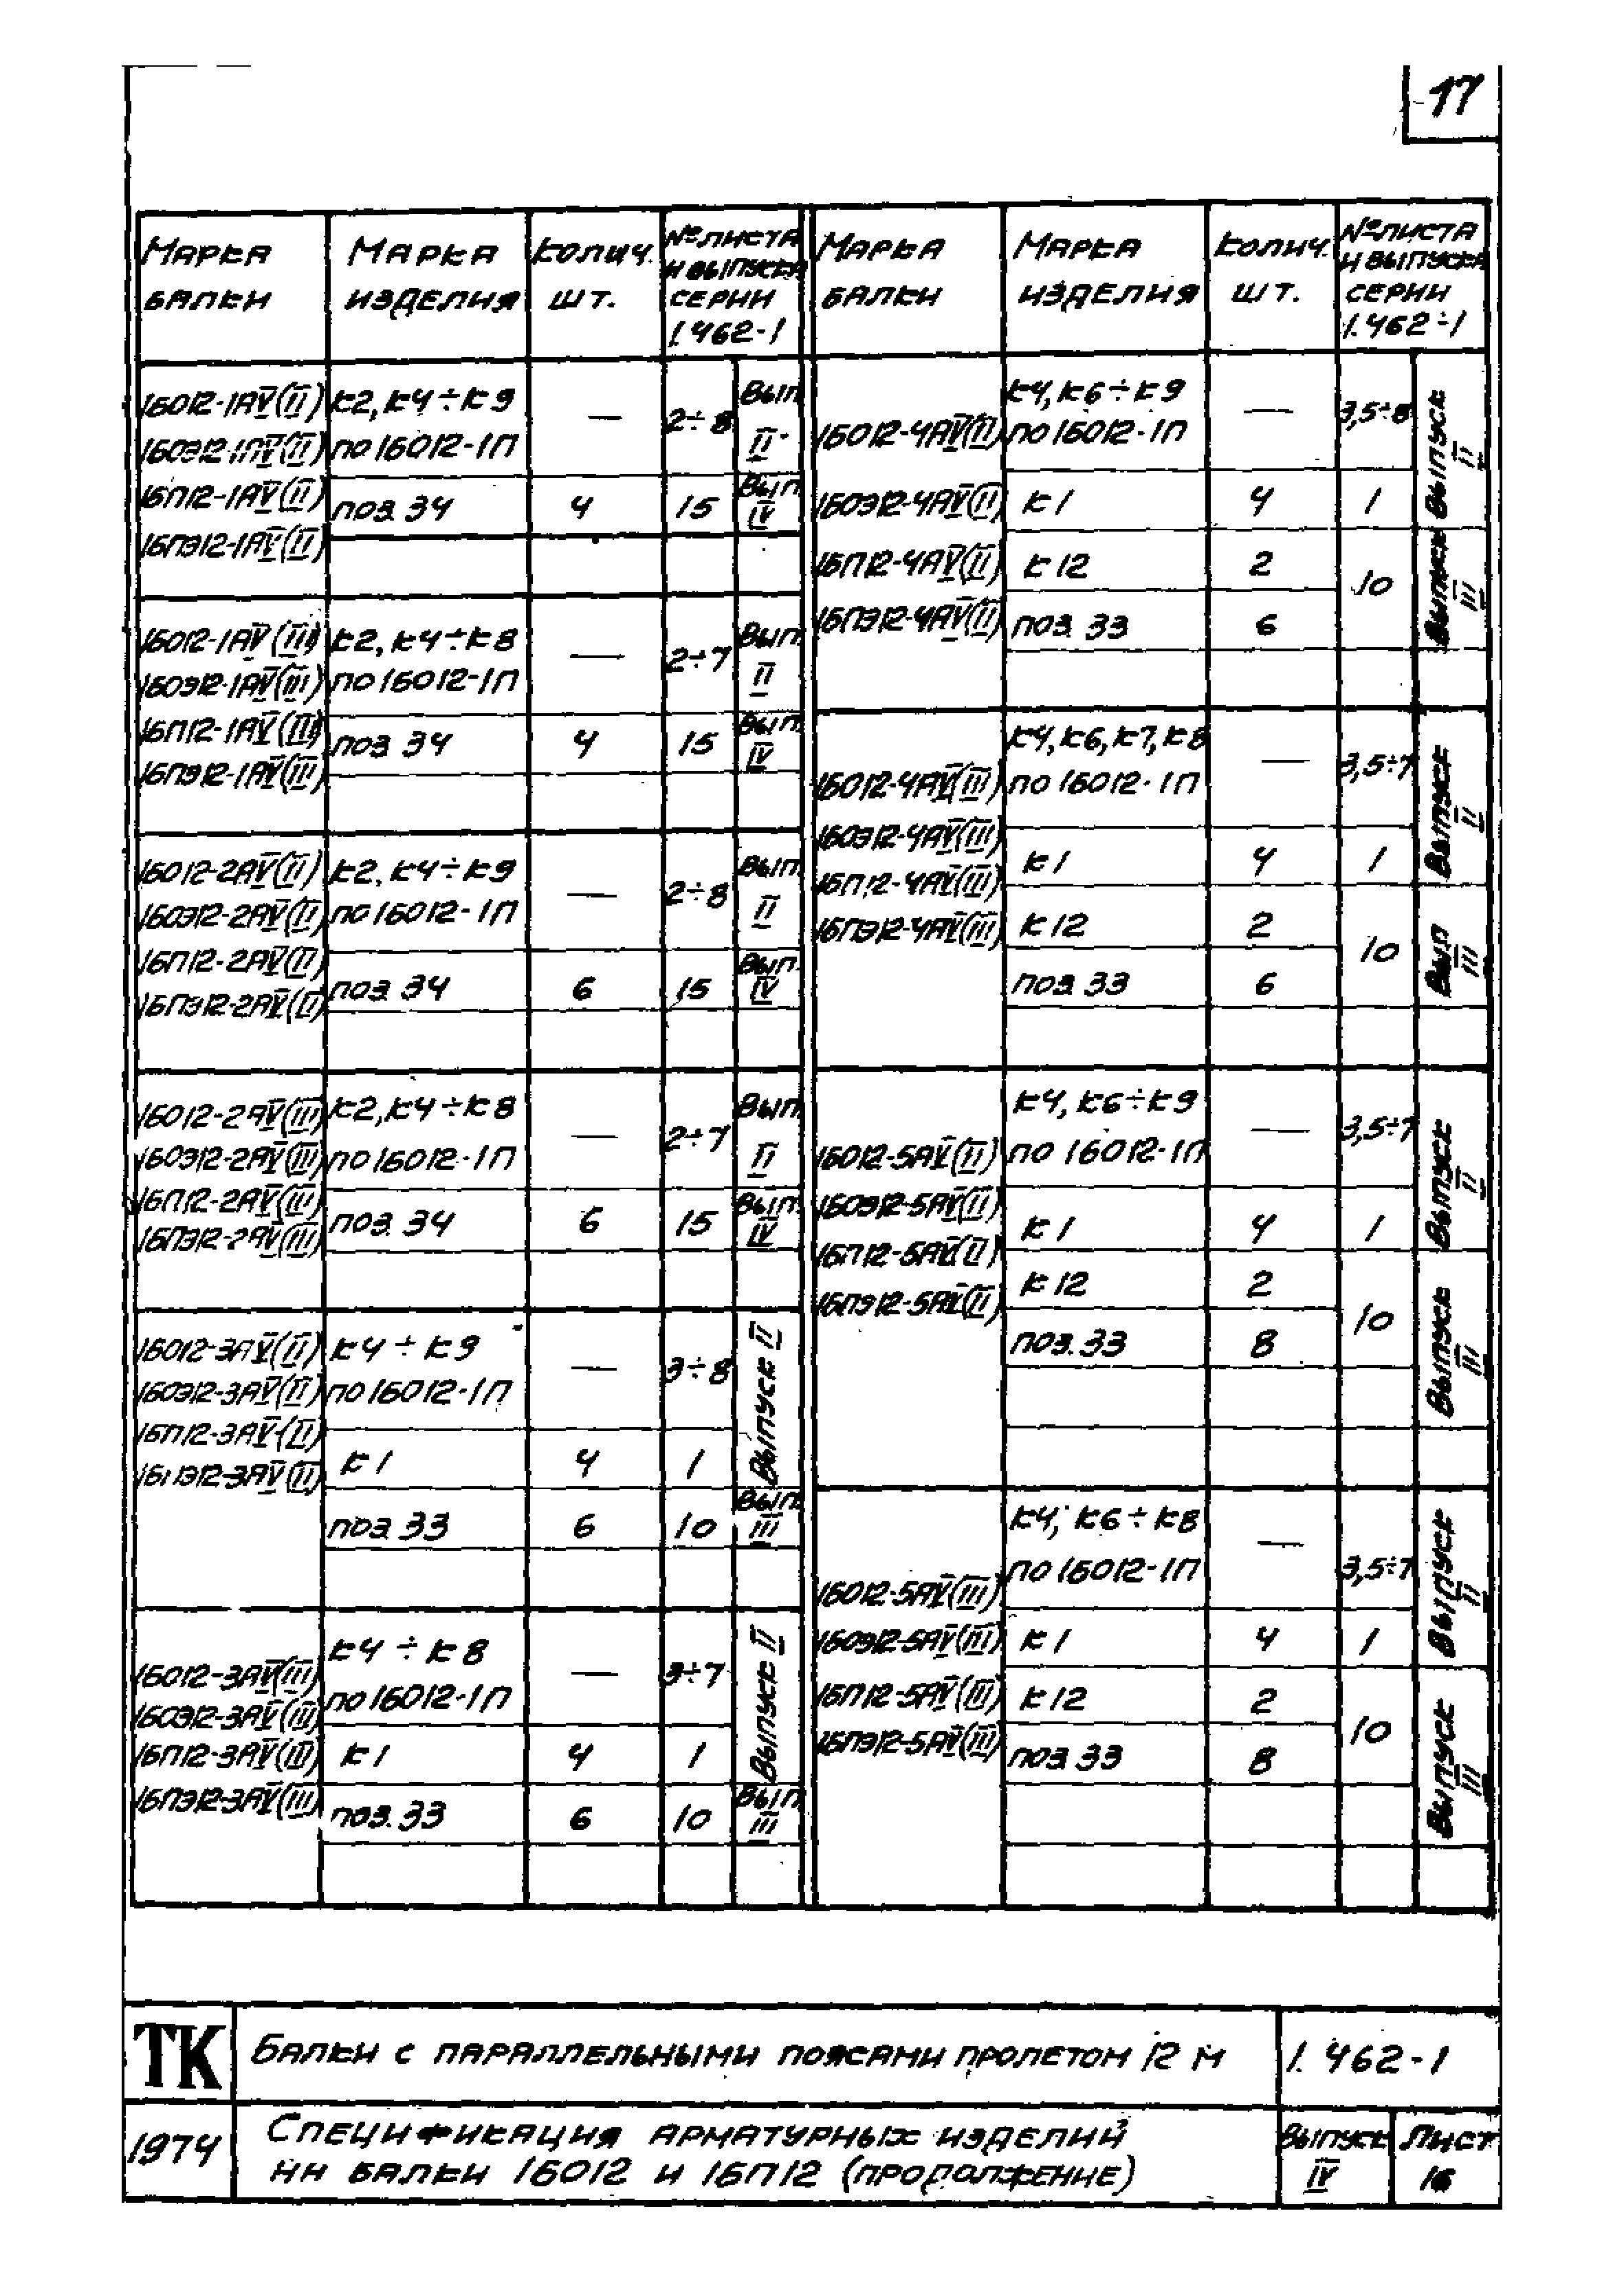 17
Марка балки | Марка изделия | Колич. шт. | № листа и выпуска серии 1.462-1
1БО12-1АV(II) | К2, К4÷К9 | — | 2÷8 | Вып. II
1БОЭ12-1АV(II) | по 1БО12-1П
1БП12-1АV(II) | поз. 34 | 4 | 15 | Вып. IV
1БПЭ12-1АV(II)
1БО12-1АV(III) | К2, К4÷К8 | — | 2÷7 | Вып. II
1БОЭ12-1АV(III) | по 1БО12-1П
1БП12-1АV(III) | поз. 34 | 4 | 15 | Вып. IV
1БПЭ12-1АV(III)
1БО12-2АV(II) | К2, К4÷К9 | — | 2÷8 | Вып. II
1БОЭ12-2АV(II) | по 1БО12-1П
1БП12-2АV(II) | поз. 34 | 6 | 15 | Вып. IV
1БПЭ12-2АV(II)
1БО12-2АV(III) | К2, К4÷К8 | — | 2÷7 | Вып. II
1БОЭ12-2АV(III) | по 1БО12-1П
1БП12-2АV(III) | поз. 34 | 6 | 15 | Вып. IV
1БПЭ12-2АV(III)
1БО12-3АV(II) | К4÷К9 | — | 3÷8 | Выпуск II
1БОЭ12-3АV(II) | по 1БО12-1П
1БП12-3АV(II) | К1 | 4 | 1
1БПЭ12-3АV(II)
поз. 33 | 6 | 10 | Вып. III
1БО12-3АV(III) | К4÷К8 | — | 3÷7 | Выпуск II
1БОЭ12-3АV(III) | по 1БО12-1П
1БП12-3АV(III) | К1 | 4 | 1
1БПЭ12-3АV(III) | поз. 33 | 6 | 10 | Вып. III
Марка балки | Марка изделия | Колич. шт. | № листа и выпуска серии 1.462-1
К4, К6÷К9 | — | 3,5÷8 | Выпуск II
1БО12-4АV(II) | по 1БО12-1П
1БОЭ12-4АV(II) | К1 | 4 | 1
1БП12-4АV(II) | К12 | 2 | 10 | Выпуск III
1БПЭ12-4АV(II) | поз. 33 | 6
К4, К6, К7, К8 | — | 3,5÷7 | Выпуск II
1БО12-4АV(III) | по 1БО12-1П
1БОЭ12-4АV(III)
1БП12-4АV(III) | К1 | 4 | 1
1БПЭ12-4АV(III) | К12 | 2 | 10 | Вып III
поз. 33 | 6
К4, К6÷К9 | — | 3,5÷7 | Выпуск II
1БО12-5АV(II) | по 1БО12-1П
1БОЭ12-5АV(II) | К1 | 4 | 1
1БП12-5АV(II)
1БПЭ12-5АV(II) | К12 | 2 | 10 | Выпуск III
поз. 33 | 8
К4, К6÷К8 | — | 3,5÷7 | Выпуск II
1БО12-5АV(III) | по 1БО12-1П
1БОЭ12-5АV(III) | К1 | 4 | 1
1БП12-5АV(III) | К12 | 2 | 10 | Выпуск III
1БПЭ12-5АV(III) | поз. 33 | 8
ТК | Балки с параллельными поясами пролетом 12 м | 1.462-1
1974 | Спецификация арматурных изделий
нн балки 1БО12 и 1БП12 (продолжение) | Выпуск IV | Лист 16